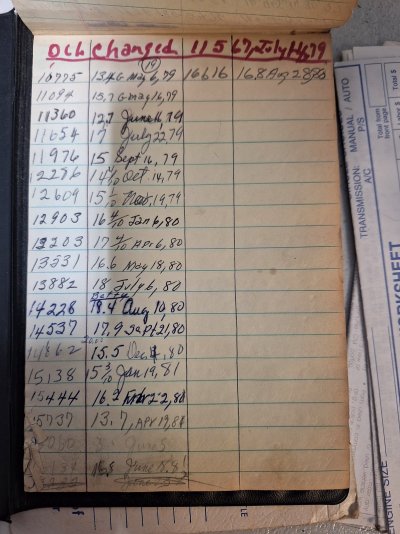 OIL changed 11567, July 14, 79
10775 13.4 G May 6, 79 16616 16.8 Aug 28
11094 13.7 G May 16, 79
11360 12.7 June 16, 79
11654 17 July 22 79
11976 15 Sept 16, 79
12286 14 1/10 Oct 14, 79
12609 15 1/10 Nov. 19, 79
12903 16 4/10 Jan 6, 80
13203 17 4/10 APR 6, 80
13531 16.6 May 18, 80
13882 18 July 6, 80
14228 18.4 Aug 10, 80
14537 17.9 Sept 21, 80
14862 15.5 Dec, 80
15138 15 3/10 Jan 19, 81
15444 16.2
15737 13.7, APR 19, 81
June
16.5 June
TRANSMISSION: MANUAL / AUTO
P/S
A/C
Total from
front page
Total $
ENGINE SIZE